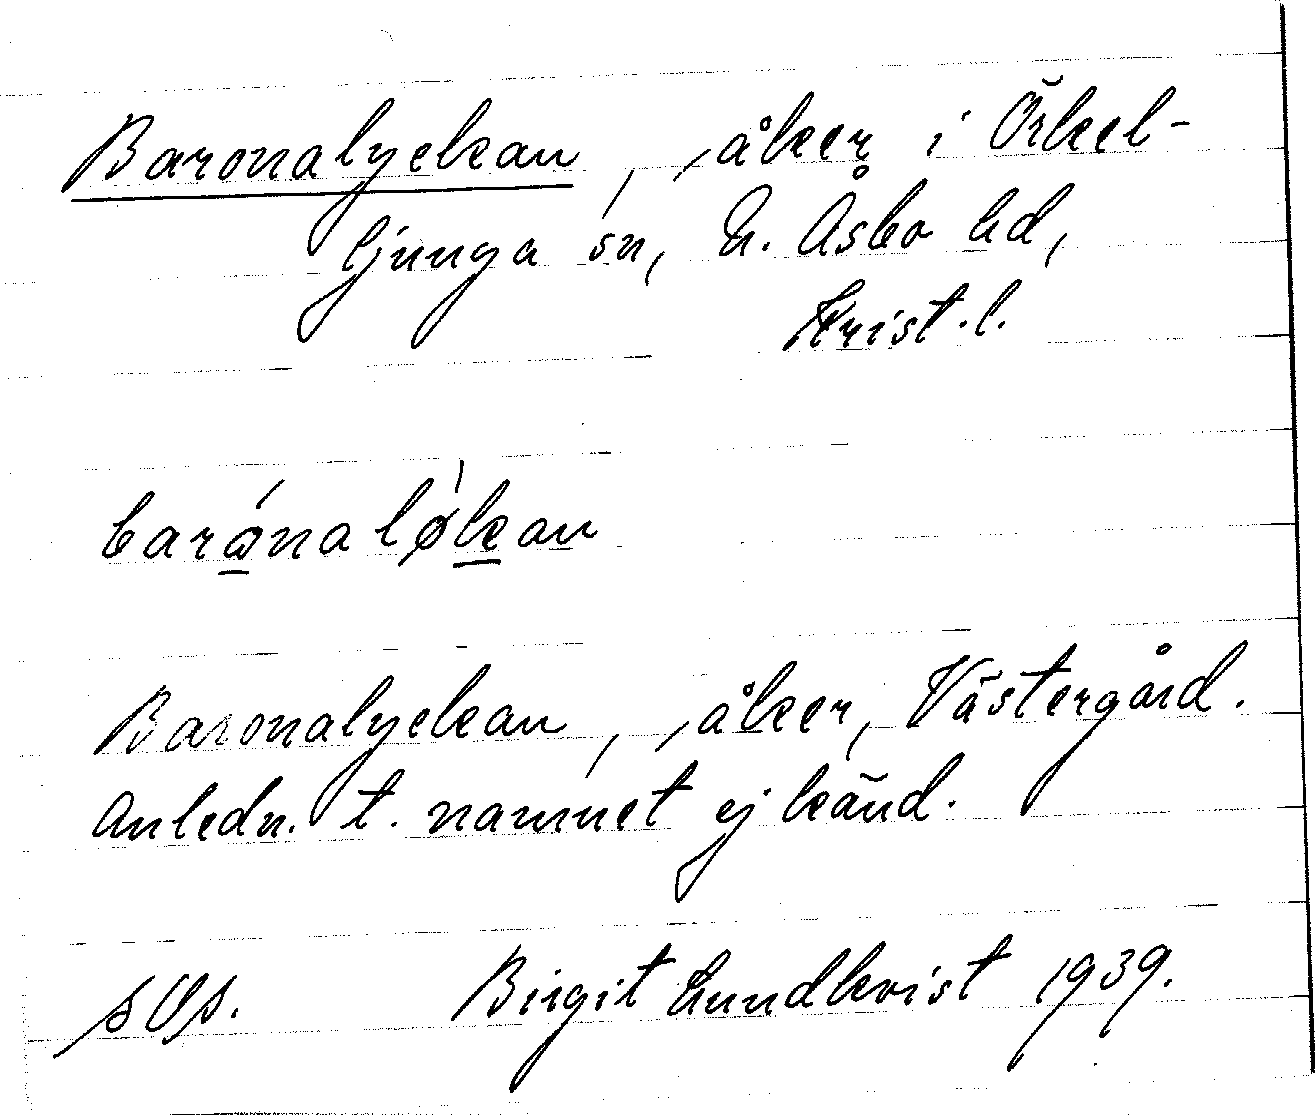 Baronalyckan, åker i Örkel-
ljunga sn, N. Åsbo hd,
Krist. l.
barǿnalø̀kan
Baronalyckan, åker, Västergård.
Anledn. t. namnet ej känd.
Birgit Lundkvist 1939.